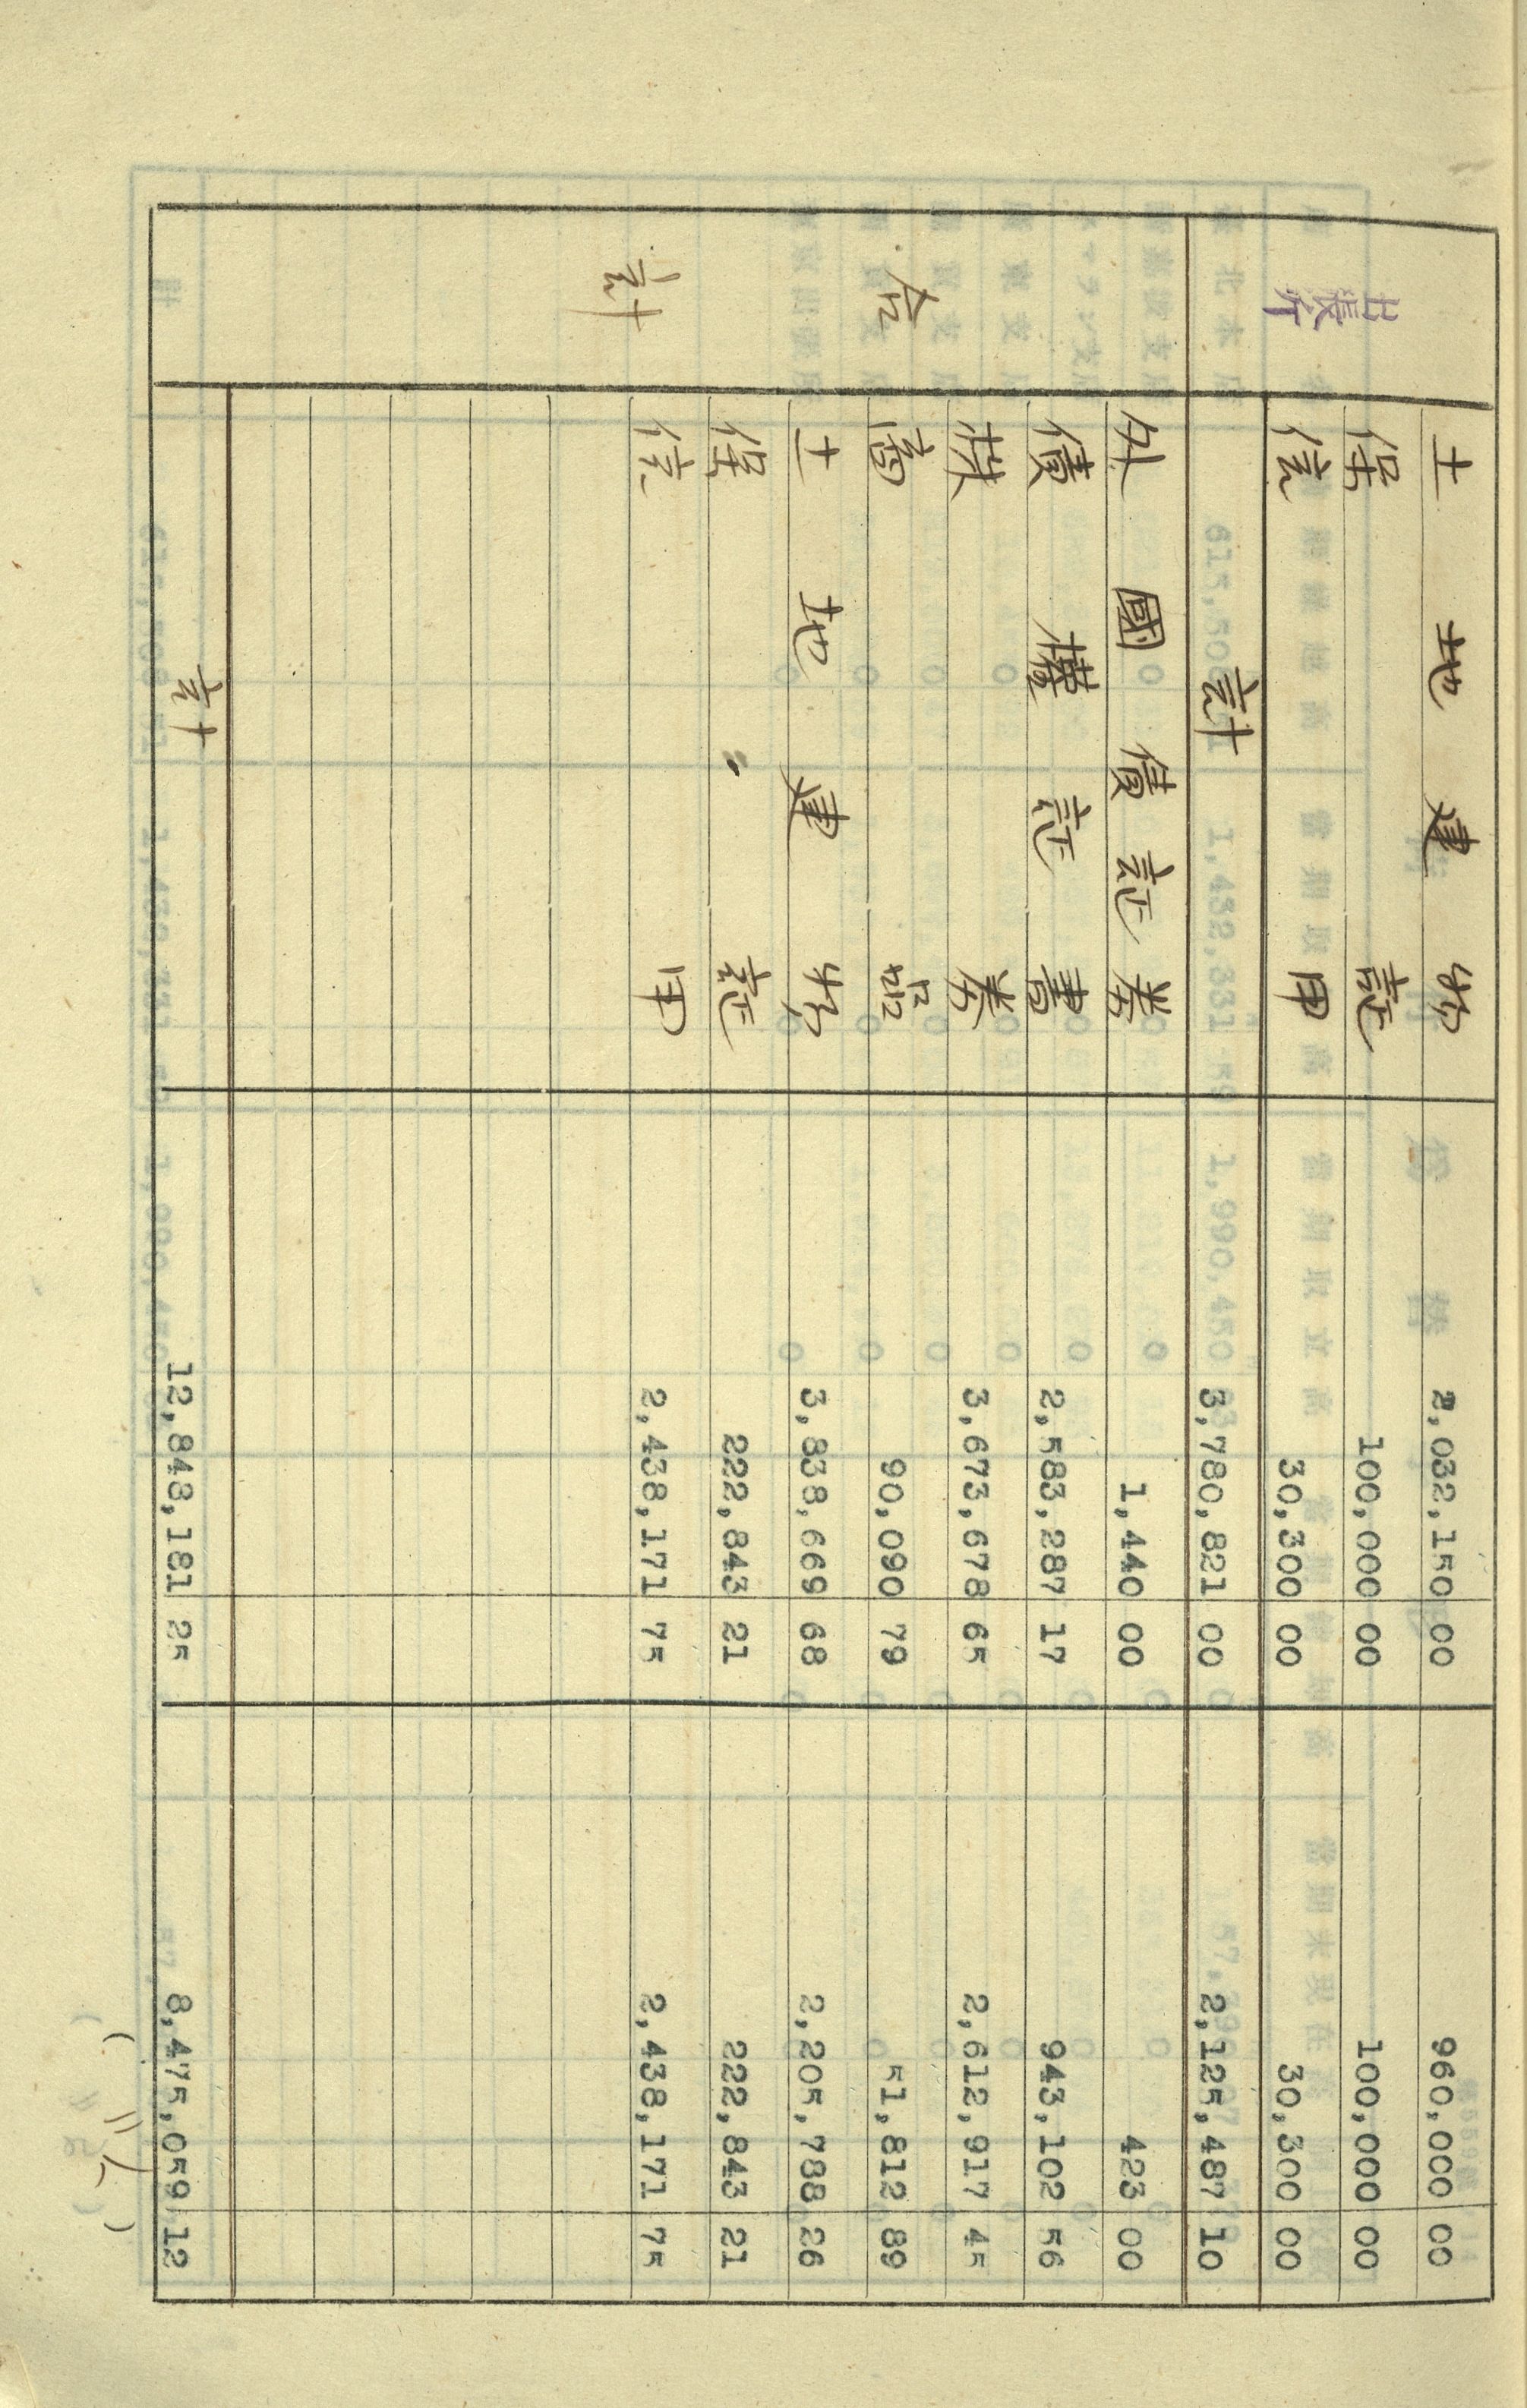 土地建物 2,032,150 00 960,000 00
保証 100,000 00 100,000 00
信用 30,300 00 30,300 00
計 3,780,821 00 2,125,487 10
合計
外國債証券 1,440 00 423 00
債權証書 2,583,287 17 943,102 56
株券 3,673,678 65 2,612,917 45
商品 90,090 79 51,812 89
土地建物 3,838,669 68 2,205,788 26
保証 222,843 21 222,843 21
信用 2,438,171 75 2,438,171 75
計 12,848,181 25 8,475,059 12